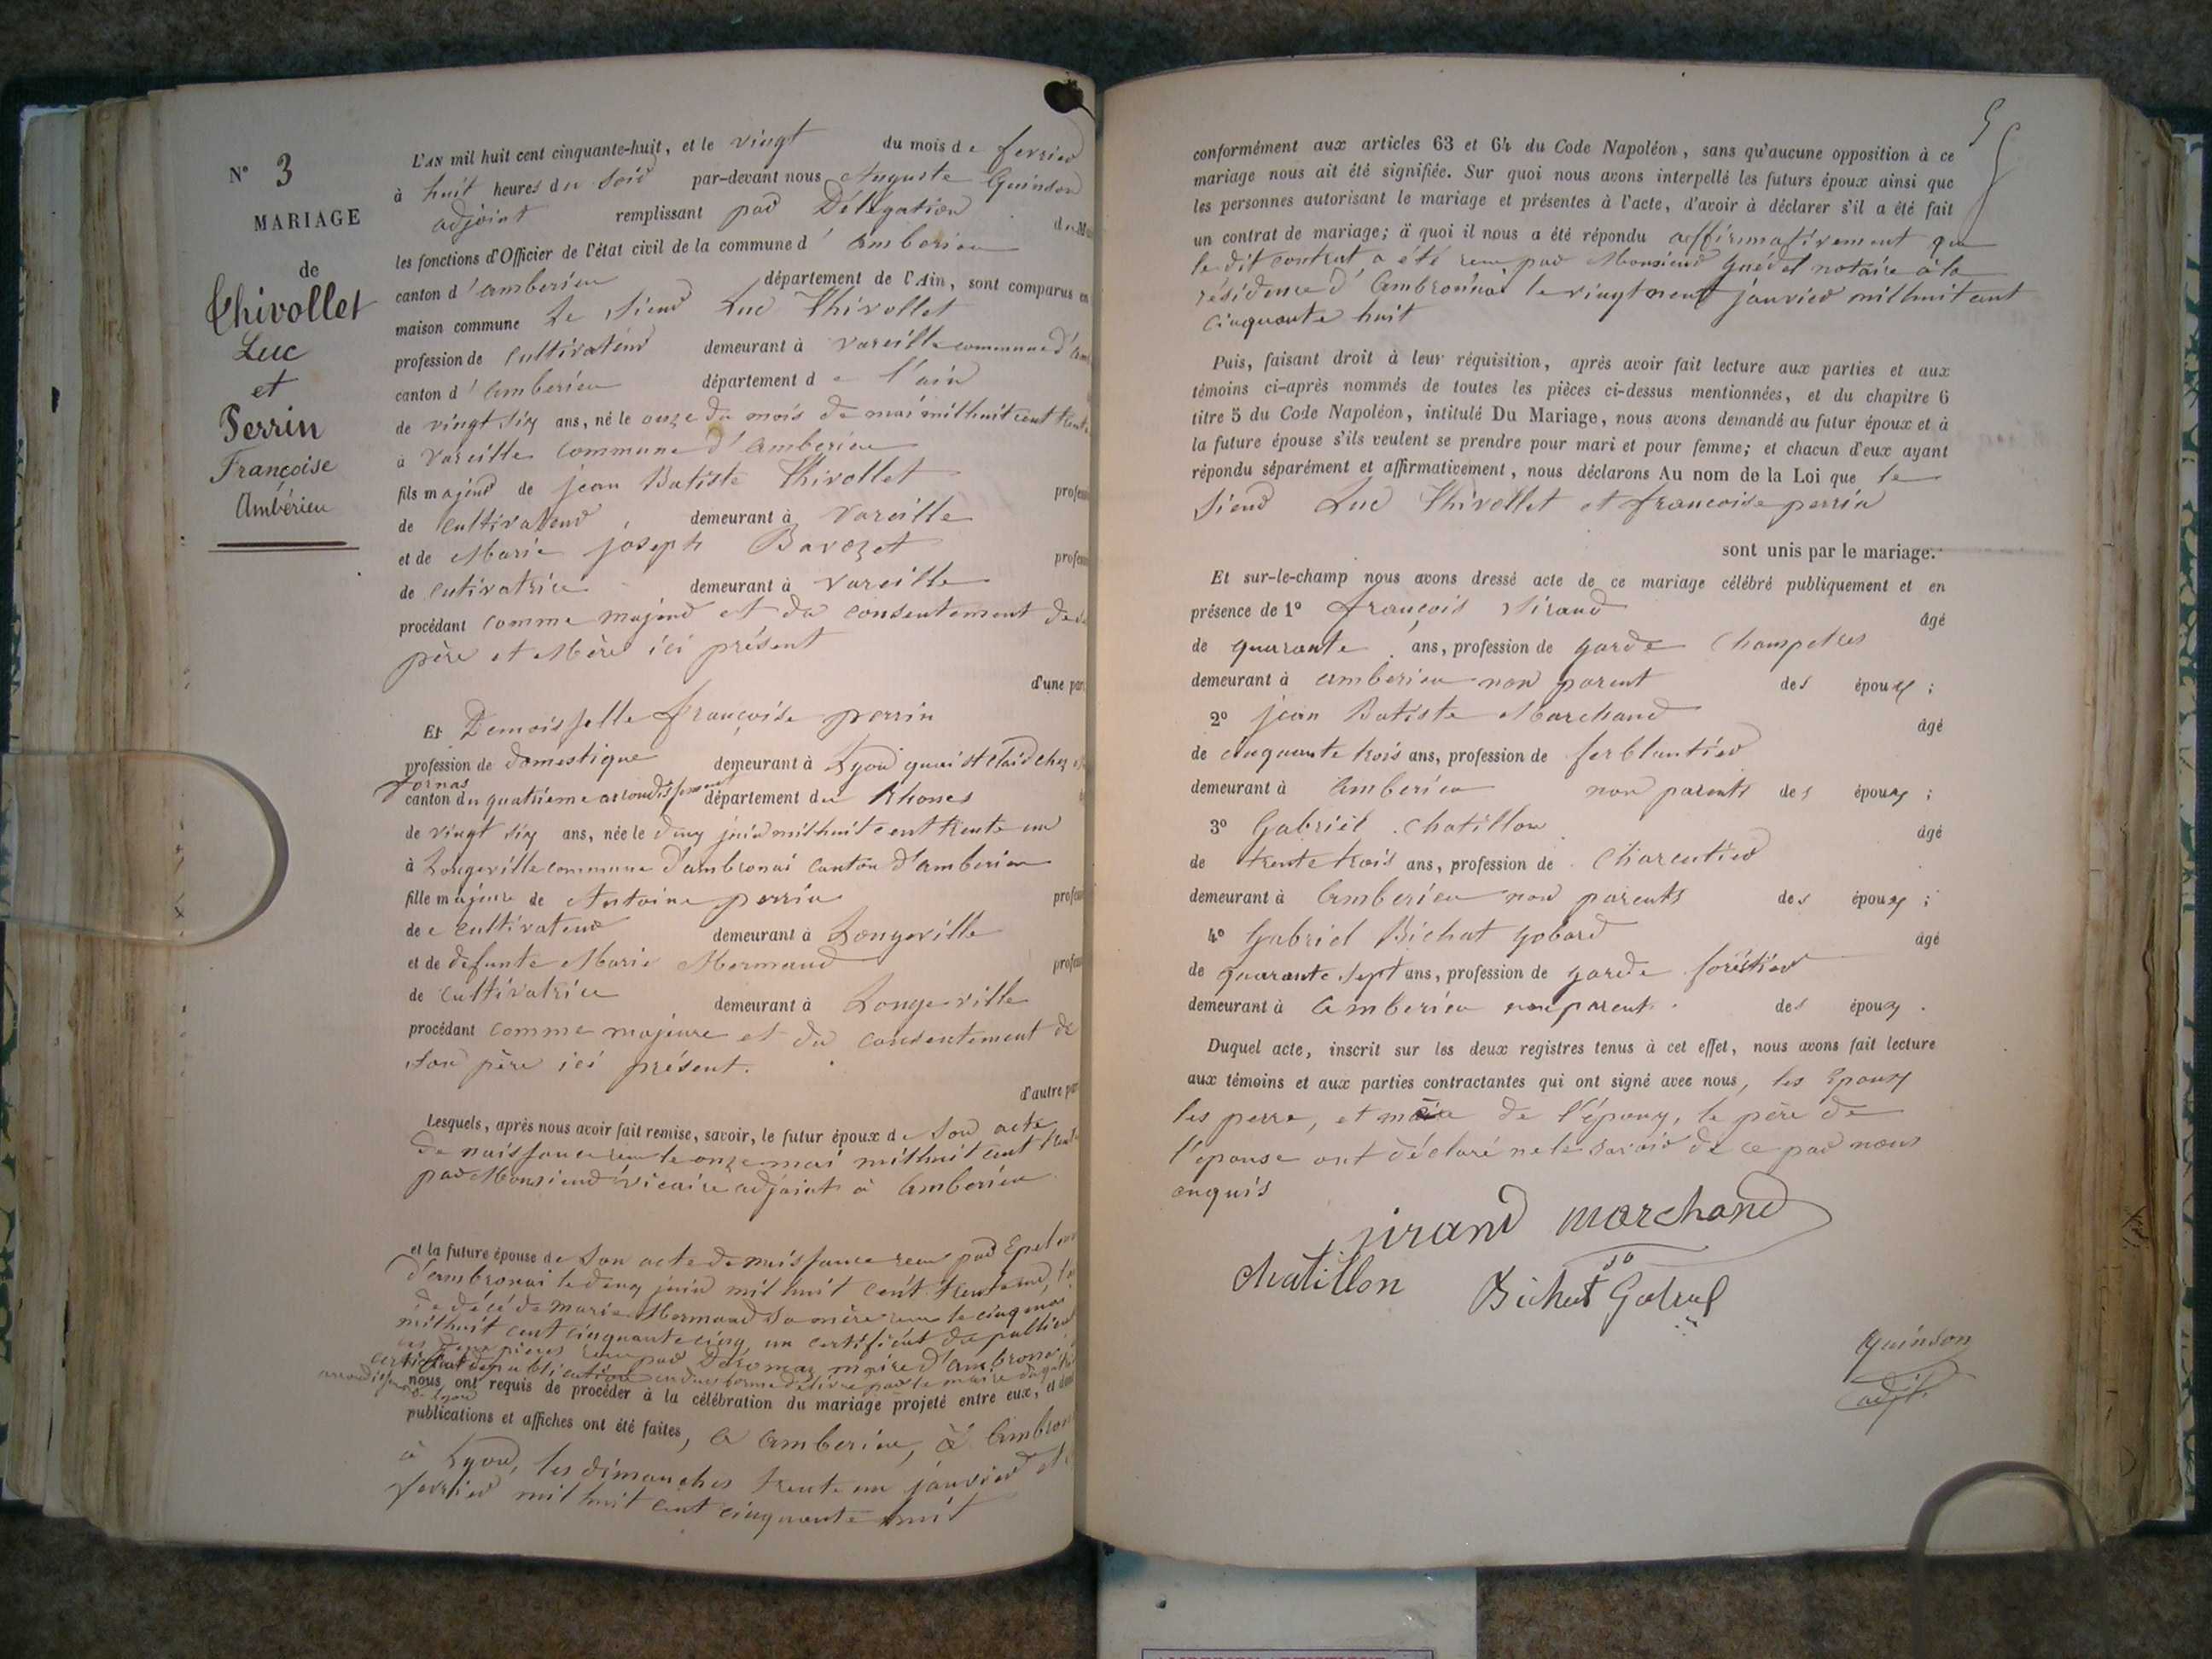 N° 3
MARIAGE
de
Thivollet
Luc
et
Perrin
Françoise
Ambérieu
L'AN mil huit cent cinquante-huit, et le vingt du mois de fevrier
à huit heures du soir par-devant nous Auguste Quinson
adjoint remplissant par Délégation
les fonctions d'Officier de l'état civil de la commune d'amberieu
canton d'amberieu département de l'Ain, sont comparus en
maison commune Le Sieur Luc Thivollet
profession de cultivateur demeurant à vareille commune d'am
canton d'amberieu département de l'ain
de vingt six ans, né le onze du mois de mai mil huit cent trente
à vareille commune d'amberieu
fils majeur de jean Batiste Thivollet
de cultivateur demeurant à vareille
et de Marie joseph Bavozet
de cutivatrice demeurant à vareille
procédant comme majeur et du consentement de
père et Mère ici présent
d'une par
Et Demoisselle françoise perrin
profession de domestique demeurant à Lyon quai St Clair chez
fornas
canton du quatrieme arrondissement département du Rhones
de vingt six ans, née le deux juin mil huit cent trente un
à Longeville commune d'ambronai canton d'amberieu
fille majeure de Antoine perrin
de cultivateur demeurant à Longeville
et de defunte Marie Mermand
de cultivatrice demeurant à Longeville
procédant comme majeure et du consentement de
son père ici présent.
d'autre par
Lesquels, après nous avoir fait remise, savoir, le futur époux de son acte
de naissance reçu le onze mai mil huit cent trente
par Monsieur vicaire adjoint à Amberieu
et la future épouse de son acte de naissance reçu par
d'ambronai le deux juin mil huit cent trente un,
de décé de marie Mermand sa mère reçu le cinq mai
mil huit cent cinquante cinq un certificat de
maire d'ambronai
certificat de publication en due forme délivré par le maire du
arrondissement
nous ont requis de procéder à la célébration du mariage projeté entre eux, et dont
de Lyon
publications et affiches ont été faites, à amberieu, à Ambron
à Lyon, les dimanches trente un janvier et
fevrier mil huit cent cinquante huit
5
conformément aux articles 63 et 64 du Code Napoléon, sans qu'aucune opposition à ce
mariage nous ait été signifiée. Sur quoi nous avons interpellé les futurs époux ainsi que
les personnes autorisant le mariage et présentes à l'acte, d'avoir à déclarer s'il a été fait
un contrat de mariage; à quoi il nous a été répondu affirmativement que
le dit contrat a été reçu par Monsieur guédel notaire à la
résidence d'Ambronai le vingt neuf janvier mil huit cent
cinquante huit
Puis, faisant droit à leur réquisition, après avoir fait lecture aux parties et aux
témoins ci-après nommés de toutes les pièces ci-dessus mentionnées, et du chapitre 6
titre 5 du Code Napoléon, intitulé Du Mariage, nous avons demandé au futur époux et à
la future épouse s'ils veulent se prendre pour mari et pour femme; et chacun d'eux ayant
répondu séparément et affirmativement, nous déclarons Au nom de la Loi que le
Sieur Luc Thivollet et françoise perrin
sont unis par le mariage.
Et sur-le-champ nous avons dressé acte de ce mariage célébré publiquement et en
présence de 1° françois Sirand âgé
de quarante ans, profession de garde Champetres
demeurant à amberieu non parent des époux ;
2° jean Batiste Marchand âgé
de cinquante trois ans, profession de ferblantier
demeurant à Amberieu non parents des époux ;
3° Gabriel Chatillon âgé
de trente trois ans, profession de Charcutier
demeurant à Amberieu non parents des époux ;
4° Gabriel Bichat gobard âgé
de quarante sept ans, profession de garde foréstier
demeurant à amberieu non parent des époux .
Duquel acte, inscrit sur les deux registres tenus à cet effet, nous avons fait lecture
aux témoins et aux parties contractantes qui ont signé avec nous, les Epoux
les perre, et mère de l'époux, le père de
l'épouse ont déclaré ne le savoir de ce par nous
enquis
sirand Marchand
chatillon Bichat
Quinson
adjt.